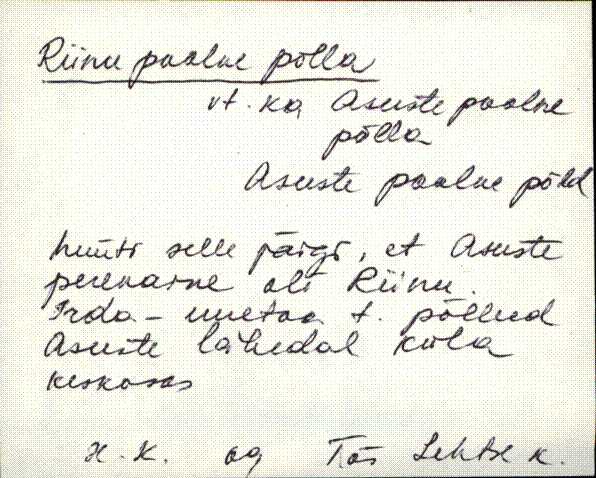 Riinu poolne põlla
vt. ka Asuste poolne
põlla
Asuste poolne põld
hüüti selle järgi, et Asuste
perenaine oli Riinu.
t. põllud
Asuste lähedal küla
keskosas
H. K. 09 Lehtse k.